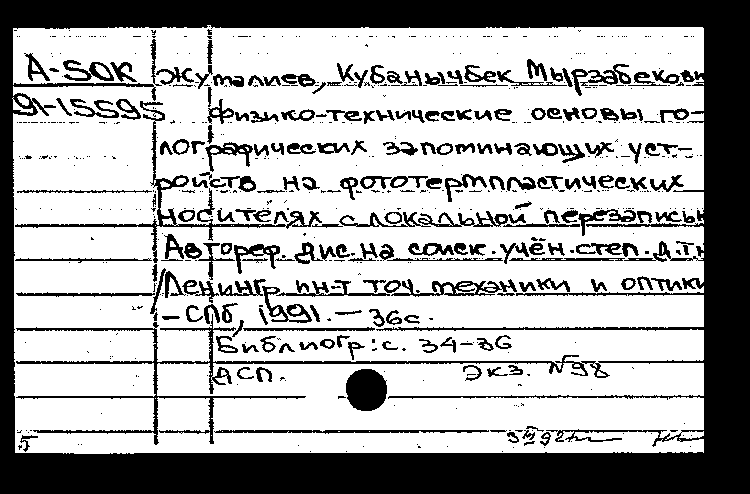 А-SOK Жуталиев, Кубанычбек Мырзабекови
91-15595 Физико-технические основы го-
лографических запоминающих уст-
ройств на фототермпластических
носителях с локальной перезапись
Автореф. дис. на соиск. учён. степ. д.т.н
/Ленингр. ин-т точ. механики и оптики
– СПб, 1991. – 36с.
Библиогр: с. 34-36
ДСП. Экз. №98
5